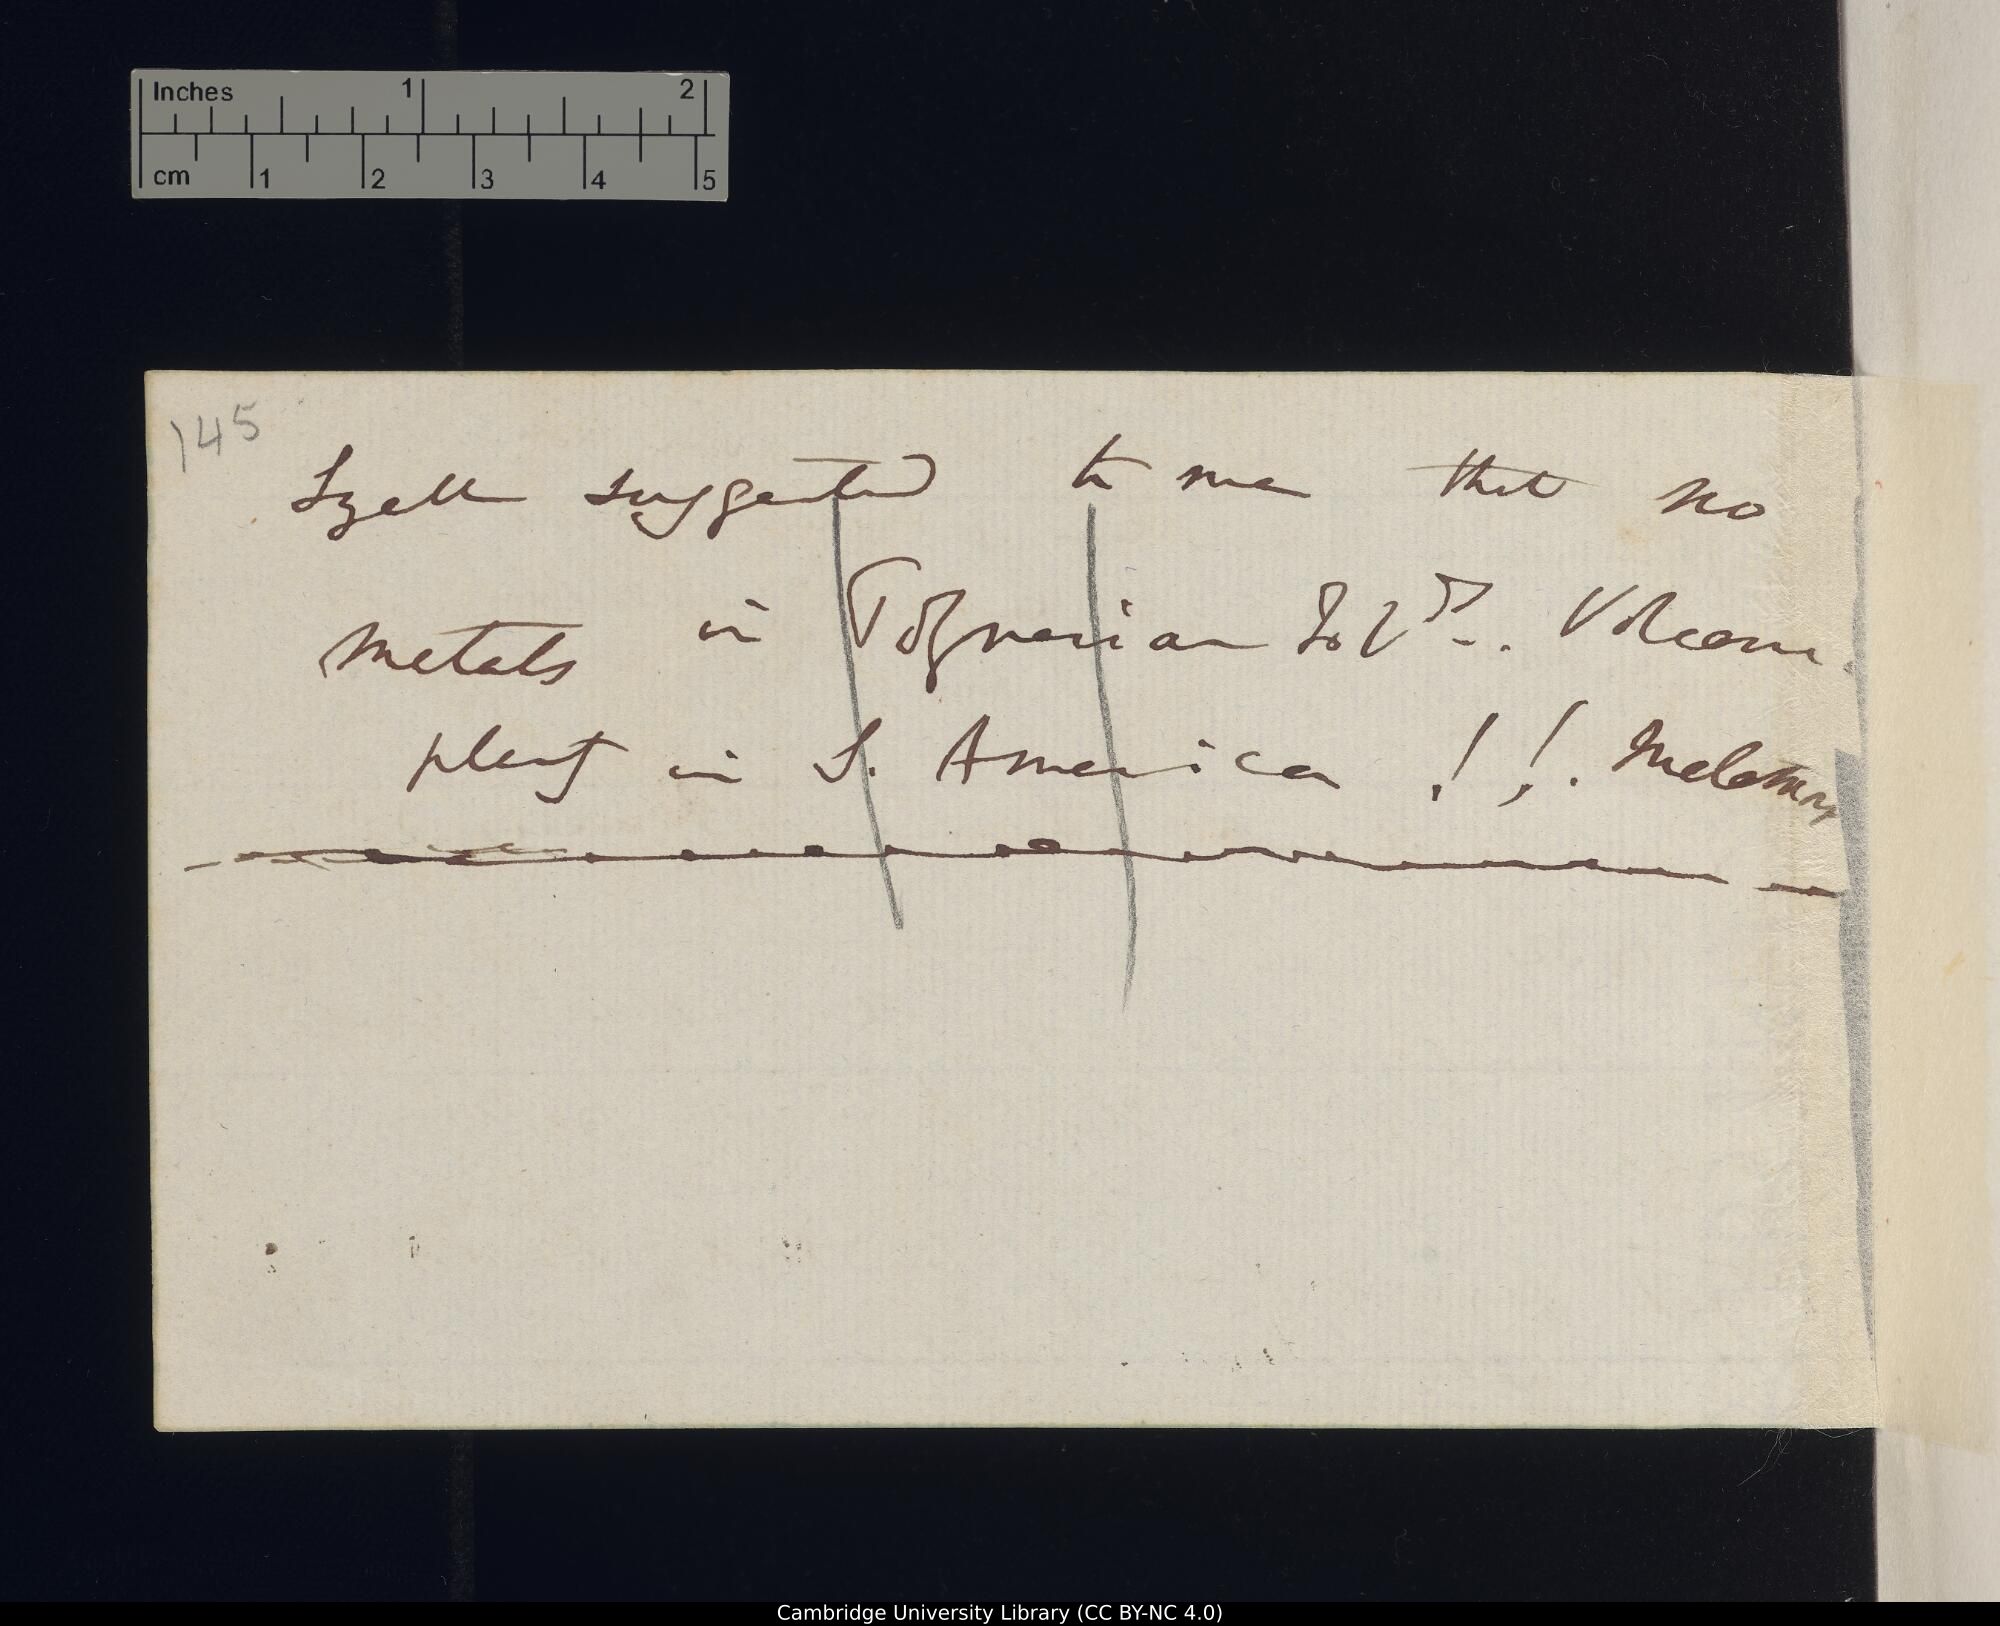 Inches 1 2
cm 1 2 3 4 5
145
Lyell suggested to me that no
metals in Polynesian Isl<sup>ds</sup>. Volcani
plenty in S. America !!. Metamorp
Cambridge University Library (CC BY-NC 4.0)